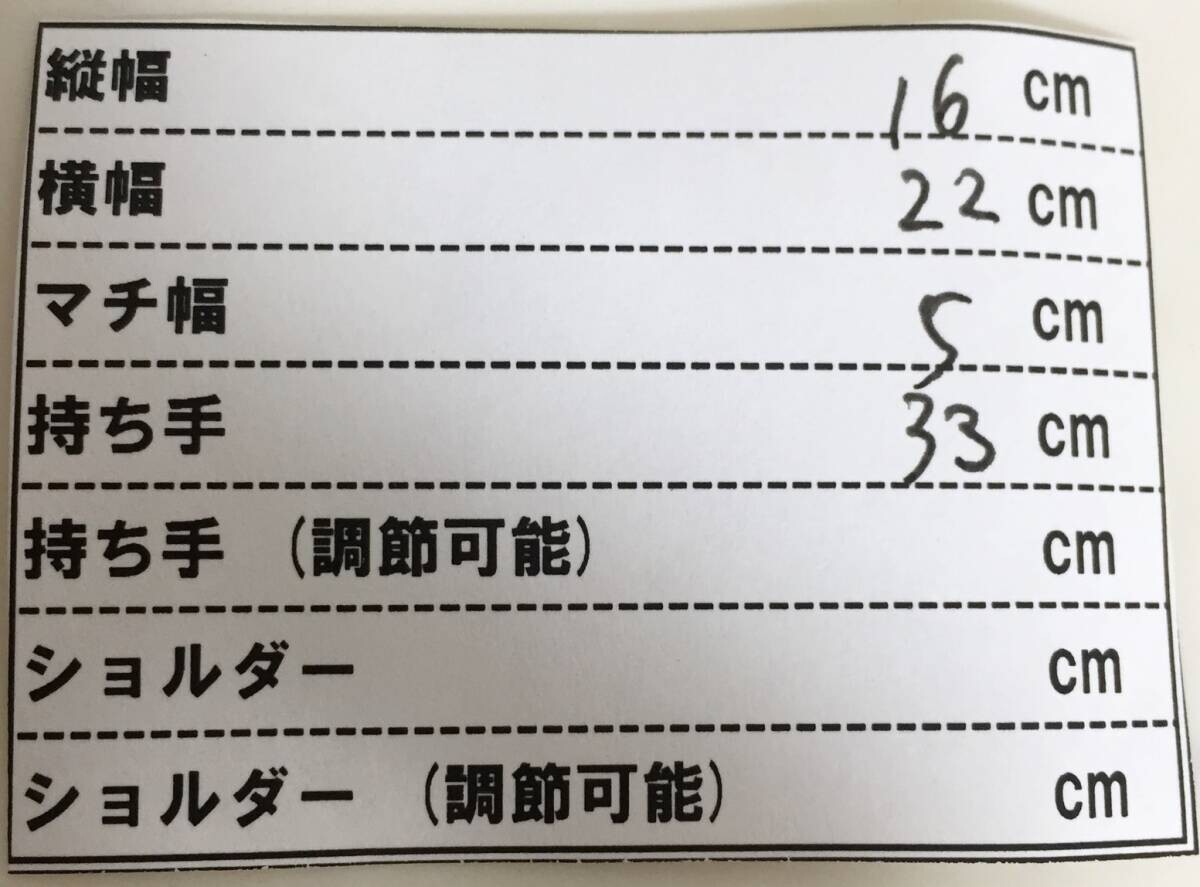 縦幅 16 cm
横幅 22 cm
マチ幅 5 cm
持ち手 33 cm
持ち手 (調節可能) cm
ショルダー cm
ショルダー (調節可能) cm